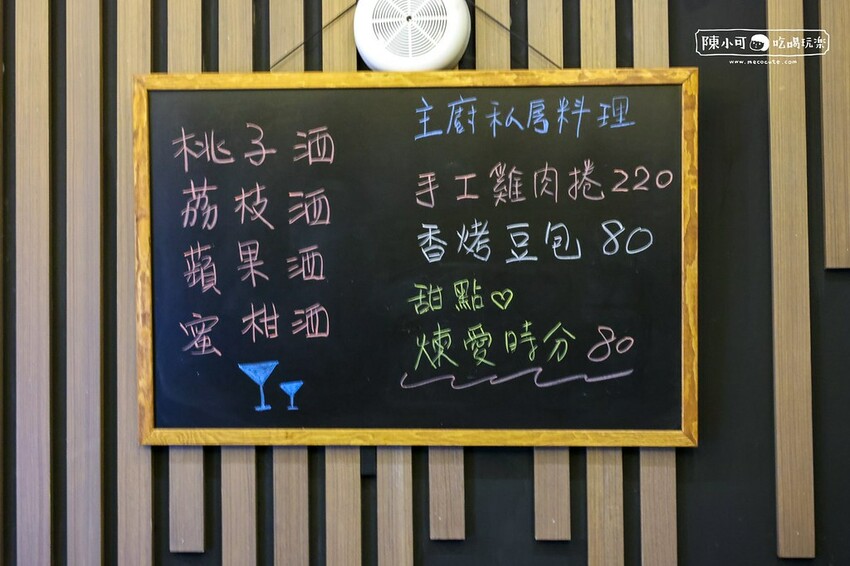 陳小可 吃喝玩樂
www.mecocute.com
桃子酒
荔枝酒
蘋果酒
蜜柑酒
主廚私房料理
手工雞肉捲220
香烤豆包 80
甜點♡
煉愛時分 80